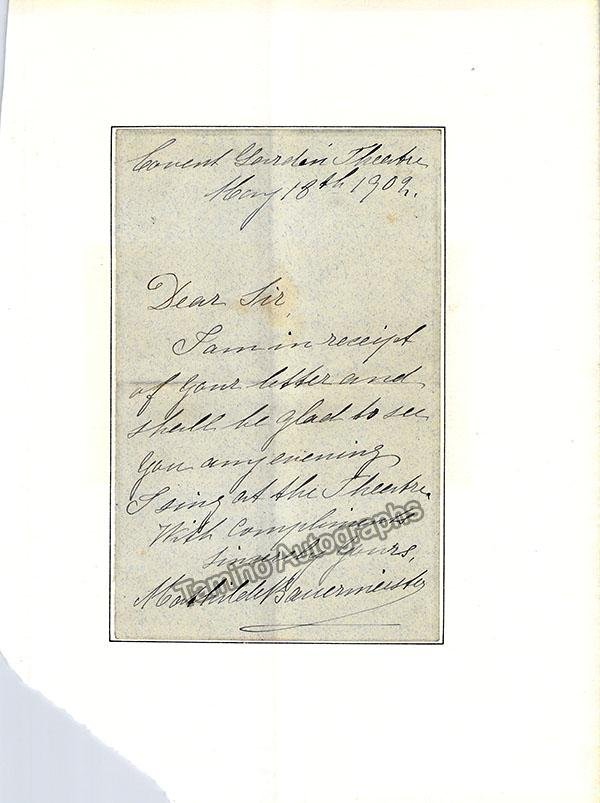 Covent Garden Theatre
May 18th 1902.
Dear Sir,
I am in receipt
of your letter and
shall be glad to see
you any evening
I sing at the Theatre.
With compliments
sincerely yours,
Mathilde Bauermeister
Tamino Autographs